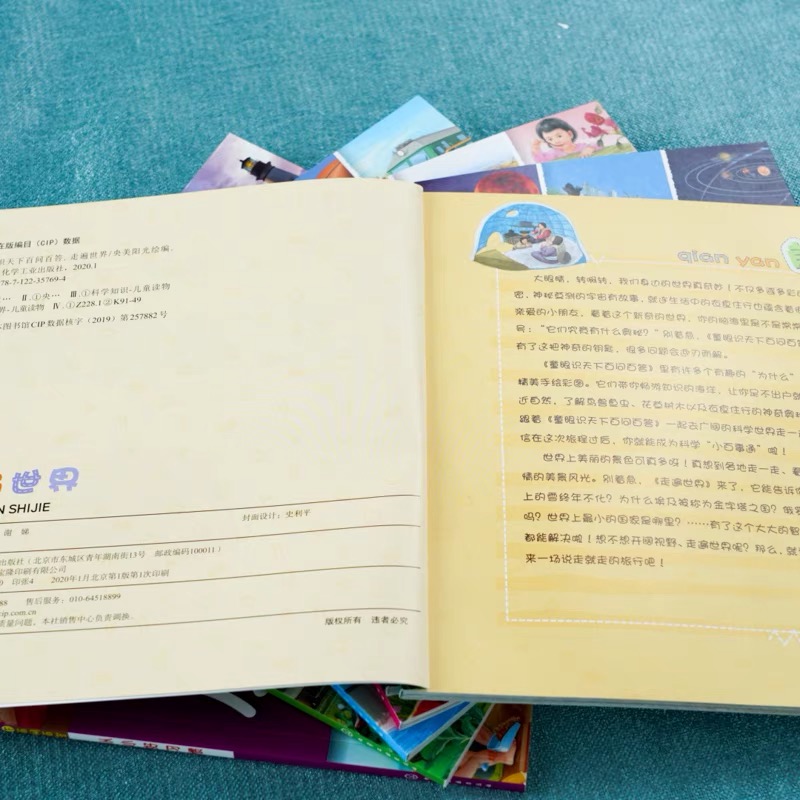 在版编目（CIP）数据
识天下百问百答. 走遍世界/央美阳光绘编.
化学工业出版社，2020.1
78-7-122-35769-4
… Ⅱ.①央… Ⅲ.①科学知识-儿童读物
界-儿童读物 Ⅳ.①Z228.1②K91-49
图书馆CIP数据核字（2019）第257882号
世界
N SHIJIE
谢 娣
封面设计：史利平
出版社（北京市东城区青年湖南街13号 邮政编码100011）
宝隆印刷有限公司
印张4 2020年1月北京第1版第1次印刷
88 售后服务：010-64518899
cip.com.cn
质量问题，本社销售中心负责调换。
版权所有 违者必究
qian yan
大眼睛，转啊转，我们身边的世界真奇妙！不仅多姿多彩
密，神秘莫测的宇宙有故事，就连生活中的衣食住行也蕴含着
亲爱的小朋友，看着这个新奇的世界，你的脑海里是不是常常
号：“它们究竟有什么奥秘？”别着急，《童眼识天下百问百答
有了这把神奇的钥匙，很多问题会迎刃而解。
《童眼识天下百问百答》里有许多个有趣的“为什么”
精美手绘彩图。它们带你畅游知识的海洋，让你足不出户就
近自然，了解鸟兽鱼虫、花草树木以及衣食住行的神奇奥秘
跟着《童眼识天下百问百答》一起去广阔的科学世界走一
信在这次旅程过后，你就能成为科学“小百事通”啦！
世界上美丽的景色可真多呀！真想到各地走一走、看
情的美景风光。别着急，《走遍世界》来了，它能告诉你
上的雪终年不化？为什么埃及被称为金字塔之国？俄罗
吗？世界上最小的国家是哪里？……有了这个大大的智
都能解决啦！想不想开阔视野、走遍世界呢？那么，就
来一场说走就走的旅行吧！